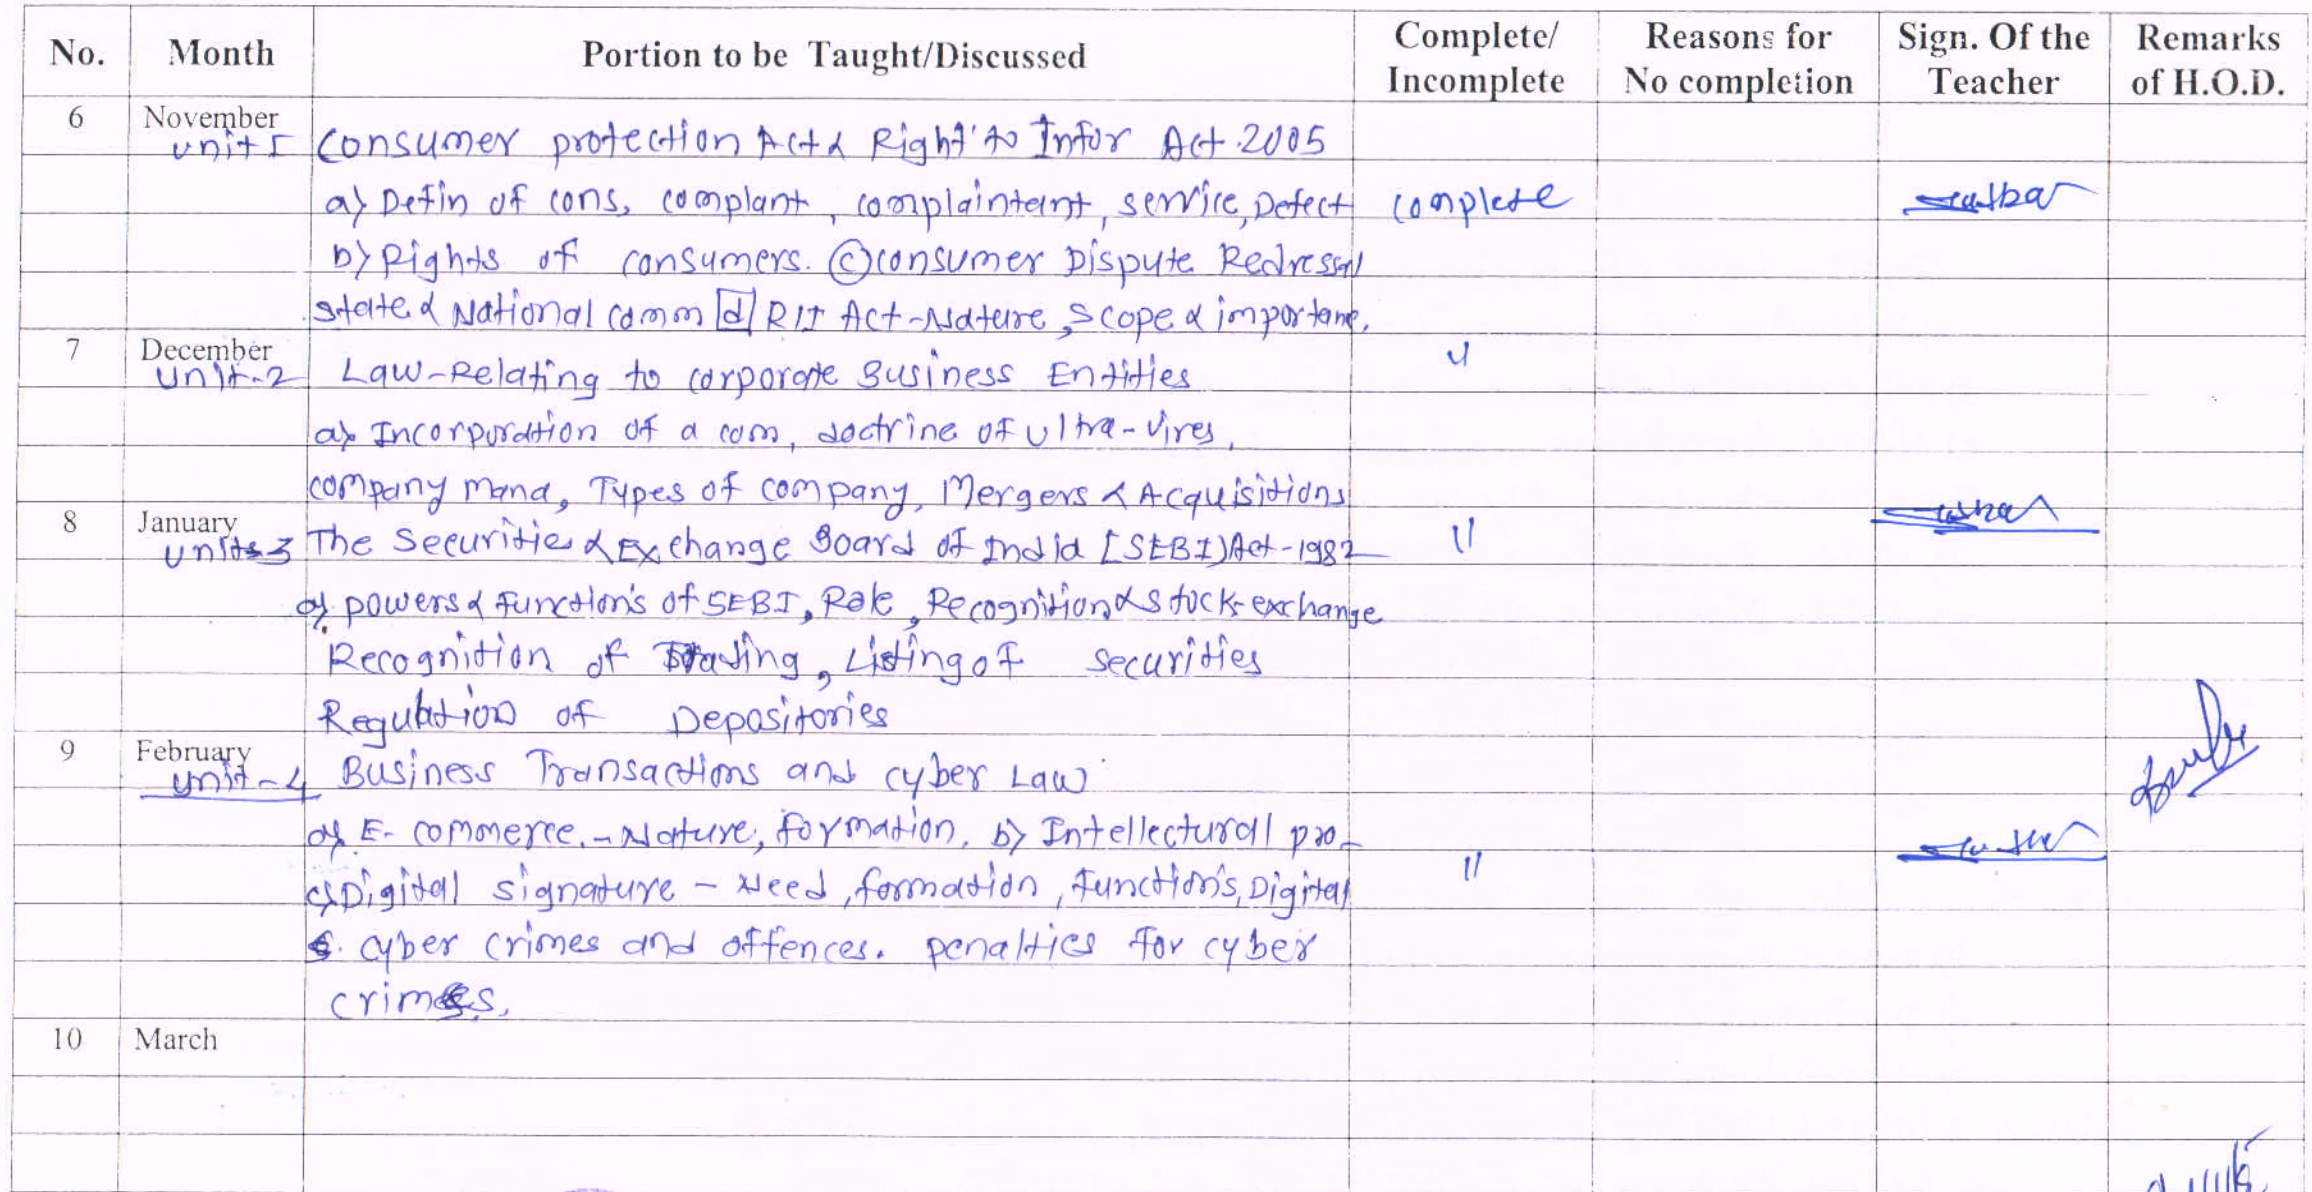 No. Month Portion to be Taught/Discussed Complete/ Incomplete Reasons for No completion Sign. Of the Teacher Remarks of H.O.D.
6 November
unit I Consumer protection Act & Right to Infor Act 2005
a) Defin of cons, complant, complainteint, service, Defect complete
b) Rights of consumers. (c) consumer Dispute Redressal
state & National comm [d] RIT Act-Nature, Scope & importane,
7 December "
unit-2 Law-Relating to corporate Business Entities
a) Incorporation of a com, doctrine of ultra-vires,
company mana, Types of company, Mergers & Acquisitions
8 January
units 3 The Securities & Exchange Board of India [SEBI) Act-1982 "
a) powers & function's of SEBI, Role, Recognition & stock-exchange
Recognition of Trading, Listing of securities
Regulation of Depositories
9 February
unit-4 Business Transactions and cyber Law
a) E-commerce.-Nature, formation. b) Intellectural pro-
c) Digital signature - Need, formation, function's, Digital "
cyber crimes and offences. penalties for cyber
crimes,
10 March